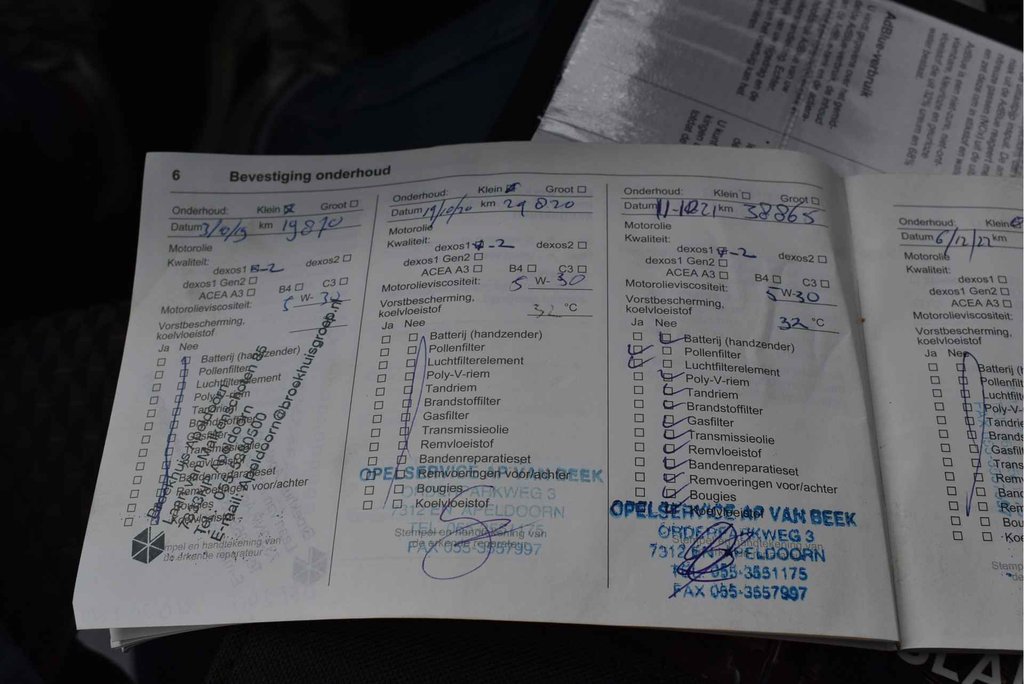 6 Bevestiging onderhoud
Onderhoud: Klein Groot
Datum 3/10/19 km 19870
Motorolie
Kwaliteit:
dexos1 -2 dexos2
dexos1 Gen2
ACEA A3 B4 C3
Motorolieviscositeit: 5 W- 30
Vorstbescherming,
koelvloeistof
Ja Nee
Batterij (handzender)
Pollenfilter
Luchtfilterelement
Poly-V-riem
Tandriem
Brandstoffilter
Gasfilter
Transmissieolie
Remvloeistof
Bandenreparatieset
Remvoeringen voor/achter
Bougies
Koelvloeistof
Stempel en handtekening van
de erkende reparateur
Broekhuis Apeldoorn
Apeldoorn
E-mail: Apeldoorn@broekhuisgroep.nl
Onderhoud: Klein Groot
Datum 19/10/20 km 29820
Motorolie
Kwaliteit:
dexos1 -2 dexos2
dexos1 Gen2
ACEA A3 B4 C3
Motorolieviscositeit: 5 W- 30
Vorstbescherming,
koelvloeistof 32 °C
Ja Nee
Batterij (handzender)
Pollenfilter
Luchtfilterelement
Poly-V-riem
Tandriem
Brandstoffilter
Gasfilter
Transmissieolie
Remvloeistof
Bandenreparatieset
Remvoeringen voor/achter
Bougies
Koelvloeistof
Stempel en handtekening van
de erkende reparateur
OPELSERVICE AP VAN BEEK
7312 EN APELDOORN
FAX 055-3557997
Onderhoud: Klein Groot
Datum 11-10-21 km 38865
Motorolie
Kwaliteit:
dexos1 -2 dexos2
dexos1 Gen2
ACEA A3 B4 C3
Motorolieviscositeit: 5 W-30
Vorstbescherming,
koelvloeistof 32 °C
Ja Nee
Batterij (handzender)
Pollenfilter
Luchtfilterelement
Poly-V-riem
Tandriem
Brandstoffilter
Gasfilter
Transmissieolie
Remvloeistof
Bandenreparatieset
Remvoeringen voor/achter
Bougies
Koelvloeistof
OPELSERVICE AP VAN BEEK
ORDERPARKWEG 3
7312 EN APELDOORN
TEL. 055-3551175
FAX 055-3557997
Onderhoud: Klein
Datum 6/12/22 km
Motorolie
Kwaliteit:
dexos1
dexos1 Gen2
ACEA A3
Motorolieviscositeit:
Vorstbescherming,
koelvloeistof
Ja Nee
Batterij (h
Pollenfilt
Luchtfilt
Poly-V-
Tandrie
Brands
Gasfilt
Trans
Rem
Ban
Rer
Bou
Koe
Stemp
de
AdBlue-verbruik